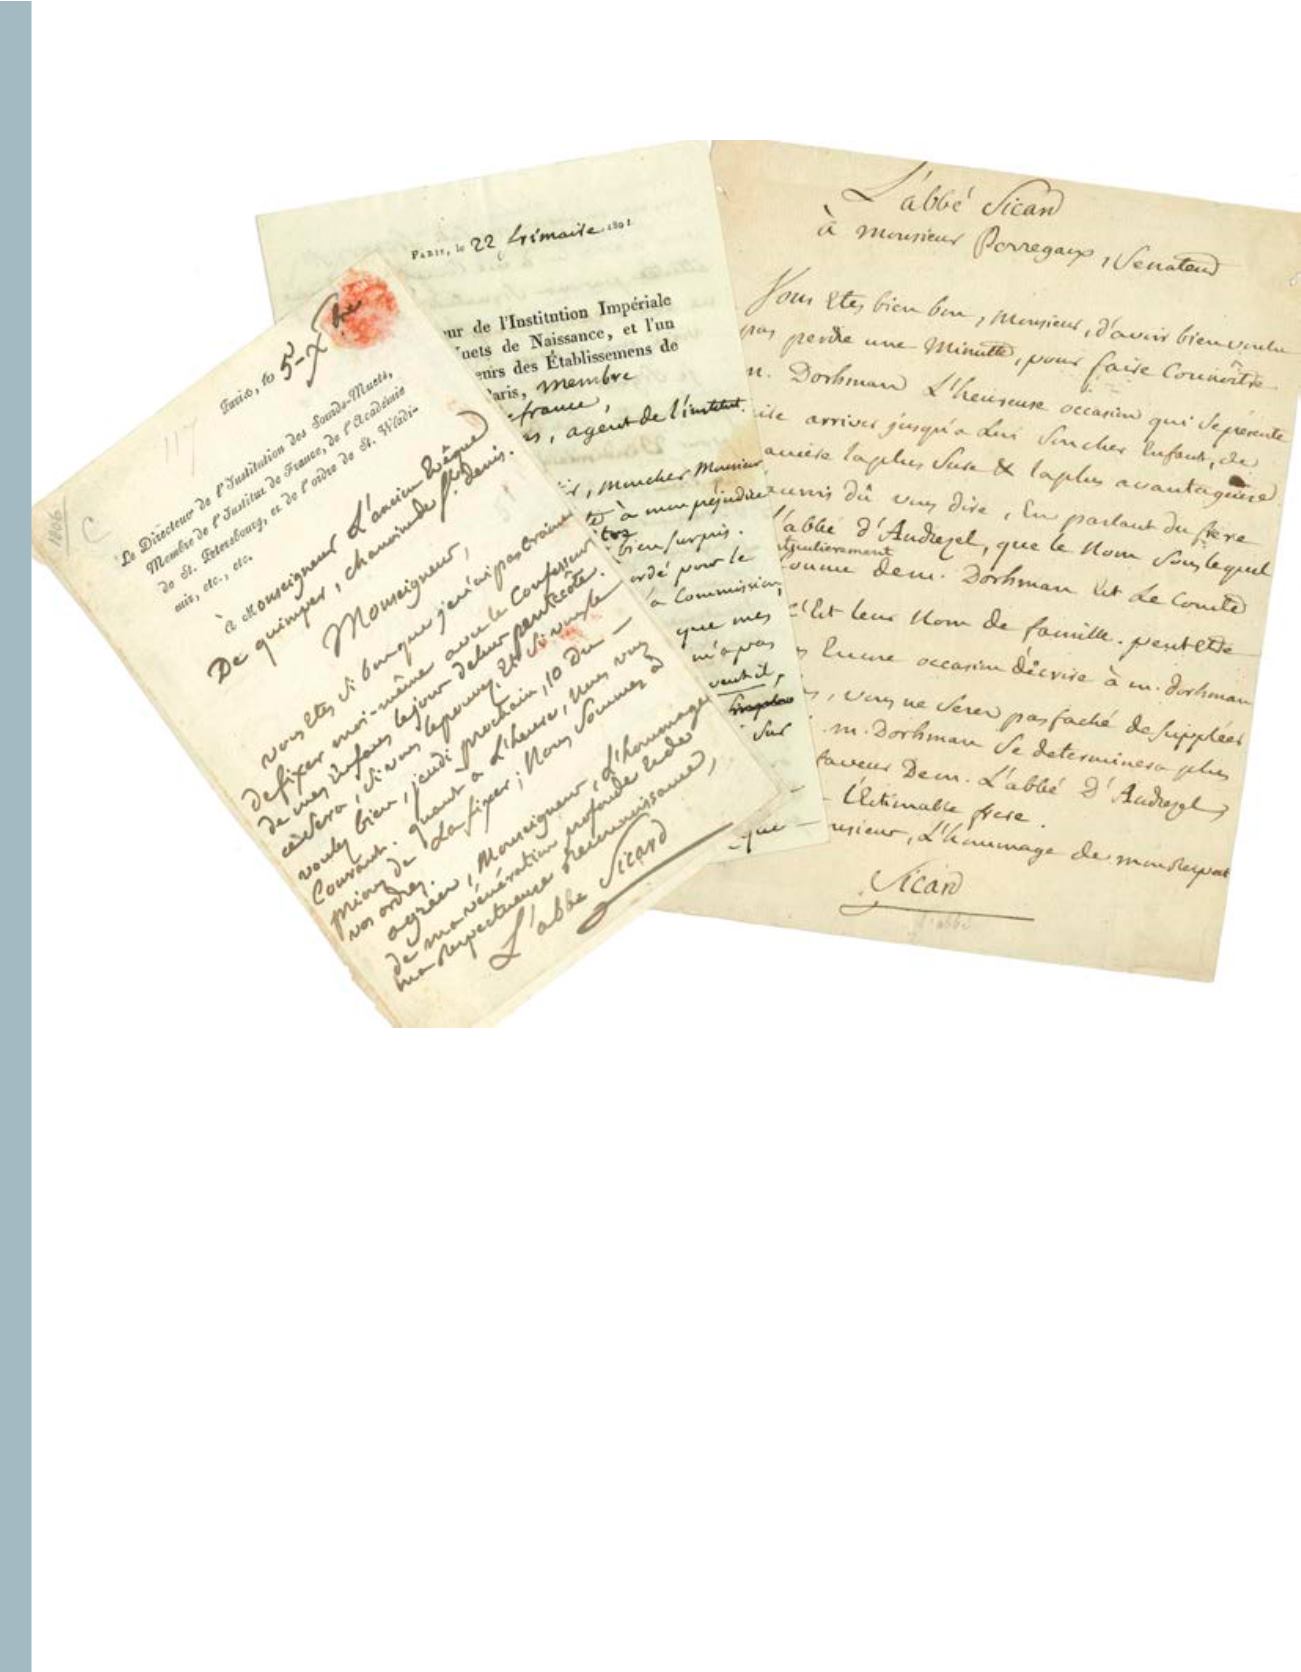 Paris, le 5 Xbre
117
1806
C
Le Directeur de l'Institution des Sourds-Muets,
Membre de l'Institut de France, de l'Académie
de St. Pétersbourg, et de l'ordre de St. Wladi-
mir, etc., etc.
à Monseigneur L'ancien Evêque
De quimper, chanoine de St. Denis.
Monseigneur,
vous êtes si bon que je n'ai pas craint
de fixer moi-même avec le Confesseur
de mes Enfans le jour de leur pentecôte.
ce sera, si vous l'approuvez, Et si vous le
voulez bien, jeudi prochain, 10 Du
Courant. quant à L'heure, Nous vous
prions de La fixer; Nous sommes à
vos ordres.
agréez, Monseigneur, L'hommage
de ma vénération profonde Et de
ma Respectueuse Reconnaissance,
L'abbé Sicard
Paris, le 22 frimaire 1801
ur de l'Institution Impériale
uets de Naissance, et l'un
eurs des Établissemens de
aris, membre
france,
, agent de l'institut.
, mon cher Monsieur
à mon préjudice
bien surpris.
ordé pour le
a Commission,
que mes
m'a pas
veut il,
sur
L'abbé Sicard
à monsieur Perregaux, Senateur
Vous Etes bien bon, Monsieur, d'avoir bien voulu
pas perdre une Minutte, pour faire Connoître
m. Dorhman L'heureuse occasion qui se présente
arriver jusqu'à Lui Son cher Enfant, de
la plus Sure & la plus avantageuse
dû vous dire, En parlant du frere
l'abbé d'Andrezel, que le Nom Sous lequel
de m. Dorhman Est Le Comte
C'Est leur Nom de famille. peut etre
Encore occasion d'écrire à m. Dorhman
, vous ne Serez pas faché de Suppléer
m. Dorhman Se determinera plus
faveur De m. L'abbé D'Andrezel
L'Estimable frere.
L'hommage de mon Respect
Sicard
l'abbé